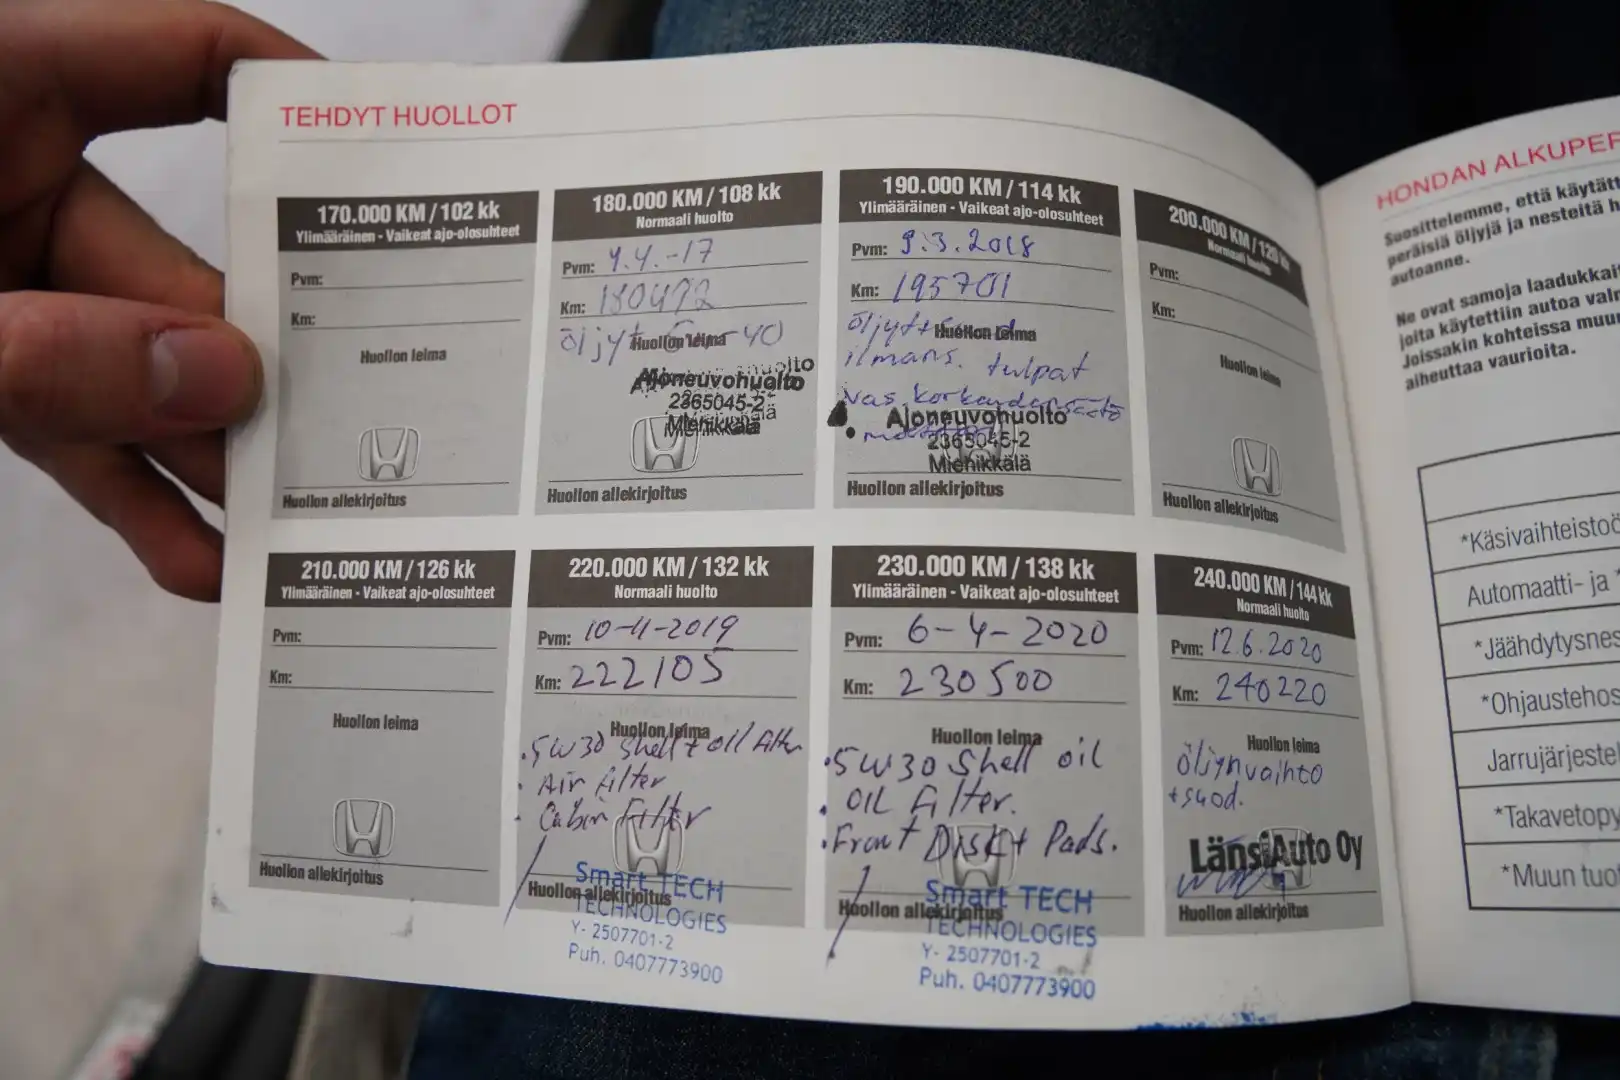 TEHDYT HUOLLOT
170.000 KM / 102 kk
Ylimääräinen - Vaikeat ajo-olosuhteet
Pvm:
Km:
Huollon leima
Huollon allekirjoitus
180.000 KM / 108 kk
Normaali huolto
Pvm: 4.4.-17
Km: 180472
öljyt 40
Huollon leima
Ajoneuvohuolto
2365045-2
Miehikkälä
Huollon allekirjoitus
190.000 KM / 114 kk
Ylimääräinen - Vaikeat ajo-olosuhteet
Pvm: 9.3.2018
Km: 195701
Huollon leima
ilmans. tulpat
vas.
Ajoneuvohuolto
2365045-2
Miehikkälä
Huollon allekirjoitus
200.000 KM / 120 kk
Normaali huolto
Pvm:
Km:
Huollon leima
Huollon allekirjoitus
210.000 KM / 126 kk
Ylimääräinen - Vaikeat ajo-olosuhteet
Pvm:
Km:
Huollon leima
Huollon allekirjoitus
220.000 KM / 132 kk
Normaali huolto
Pvm: 10-11-2019
Km: 222105
Huollon leima
.5W30 Shell + oil filter
. Air filter
. Cabin Filter
Huollon allekirjoitus
Smart TECH
TECHNOLOGIES
Y- 2507701-2
Puh. 0407773900
230.000 KM / 138 kk
Ylimääräinen - Vaikeat ajo-olosuhteet
Pvm: 6-4-2020
Km: 230500
Huollon leima
.5W30 Shell oil
. OIL Filter.
.Front Disk + Pads.
Huollon allekirjoitus
Smart TECH
TECHNOLOGIES
Y- 2507701-2
Puh. 0407773900
240.000 KM / 144 kk
Normaali huolto
Pvm: 12.6.2020
Km: 240220
Huollon leima
öljynvaihto
+suod.
LänsiAuto Oy
Huollon allekirjoitus
HONDAN ALKUPER
Suosittelemme, että käytätt
peräisiä öljyjä ja nesteitä h
autoanne.
Ne ovat samoja laadukkait
joita käytettiin autoa valm
Joissakin kohteissa muu
aiheuttaa vaurioita.
*Käsivaihteistoö
Automaatti- ja
*Jäähdytysnes
*Ohjaustehos
Jarrujärjestel
*Takavetopy
*Muun tuot